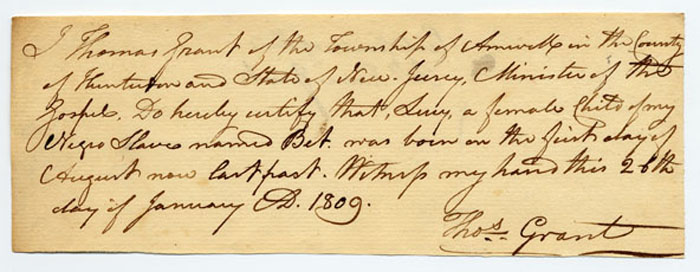 I Thomas Grant of the Township of Amwell in the County
of Hunterdon and State of New-Jersey, Minister of the
Gospel. Do hereby certify that, Lucy, a female Child of my
Negro Slave named Bet. was born on the first day of
August now last past. Witness my hand this 26th
day of January AD. 1809.
Thos. Grant